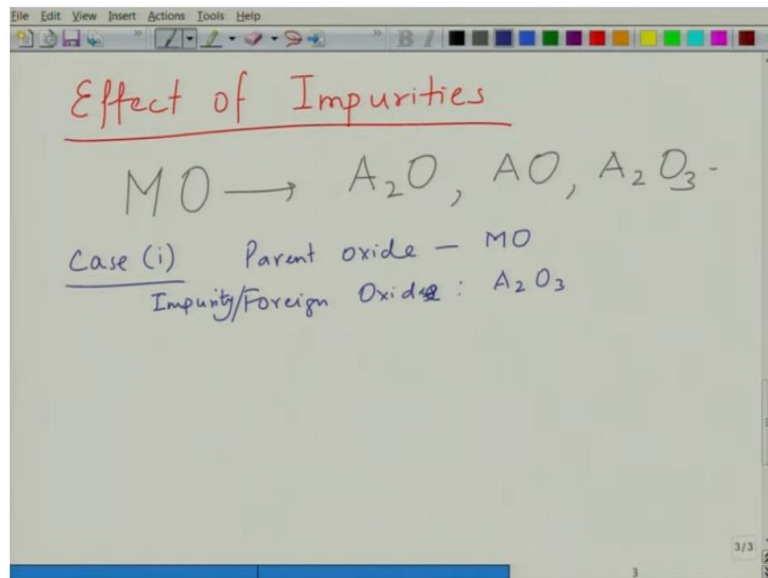 File Edit View Insert Actions Tools Help
B I
Effect of Impurities
MO → A₂O, AO, A₂O₃ -
Case (i) Parent oxide — MO
Impurity/Foreign Oxide : A₂O₃
3/3
3